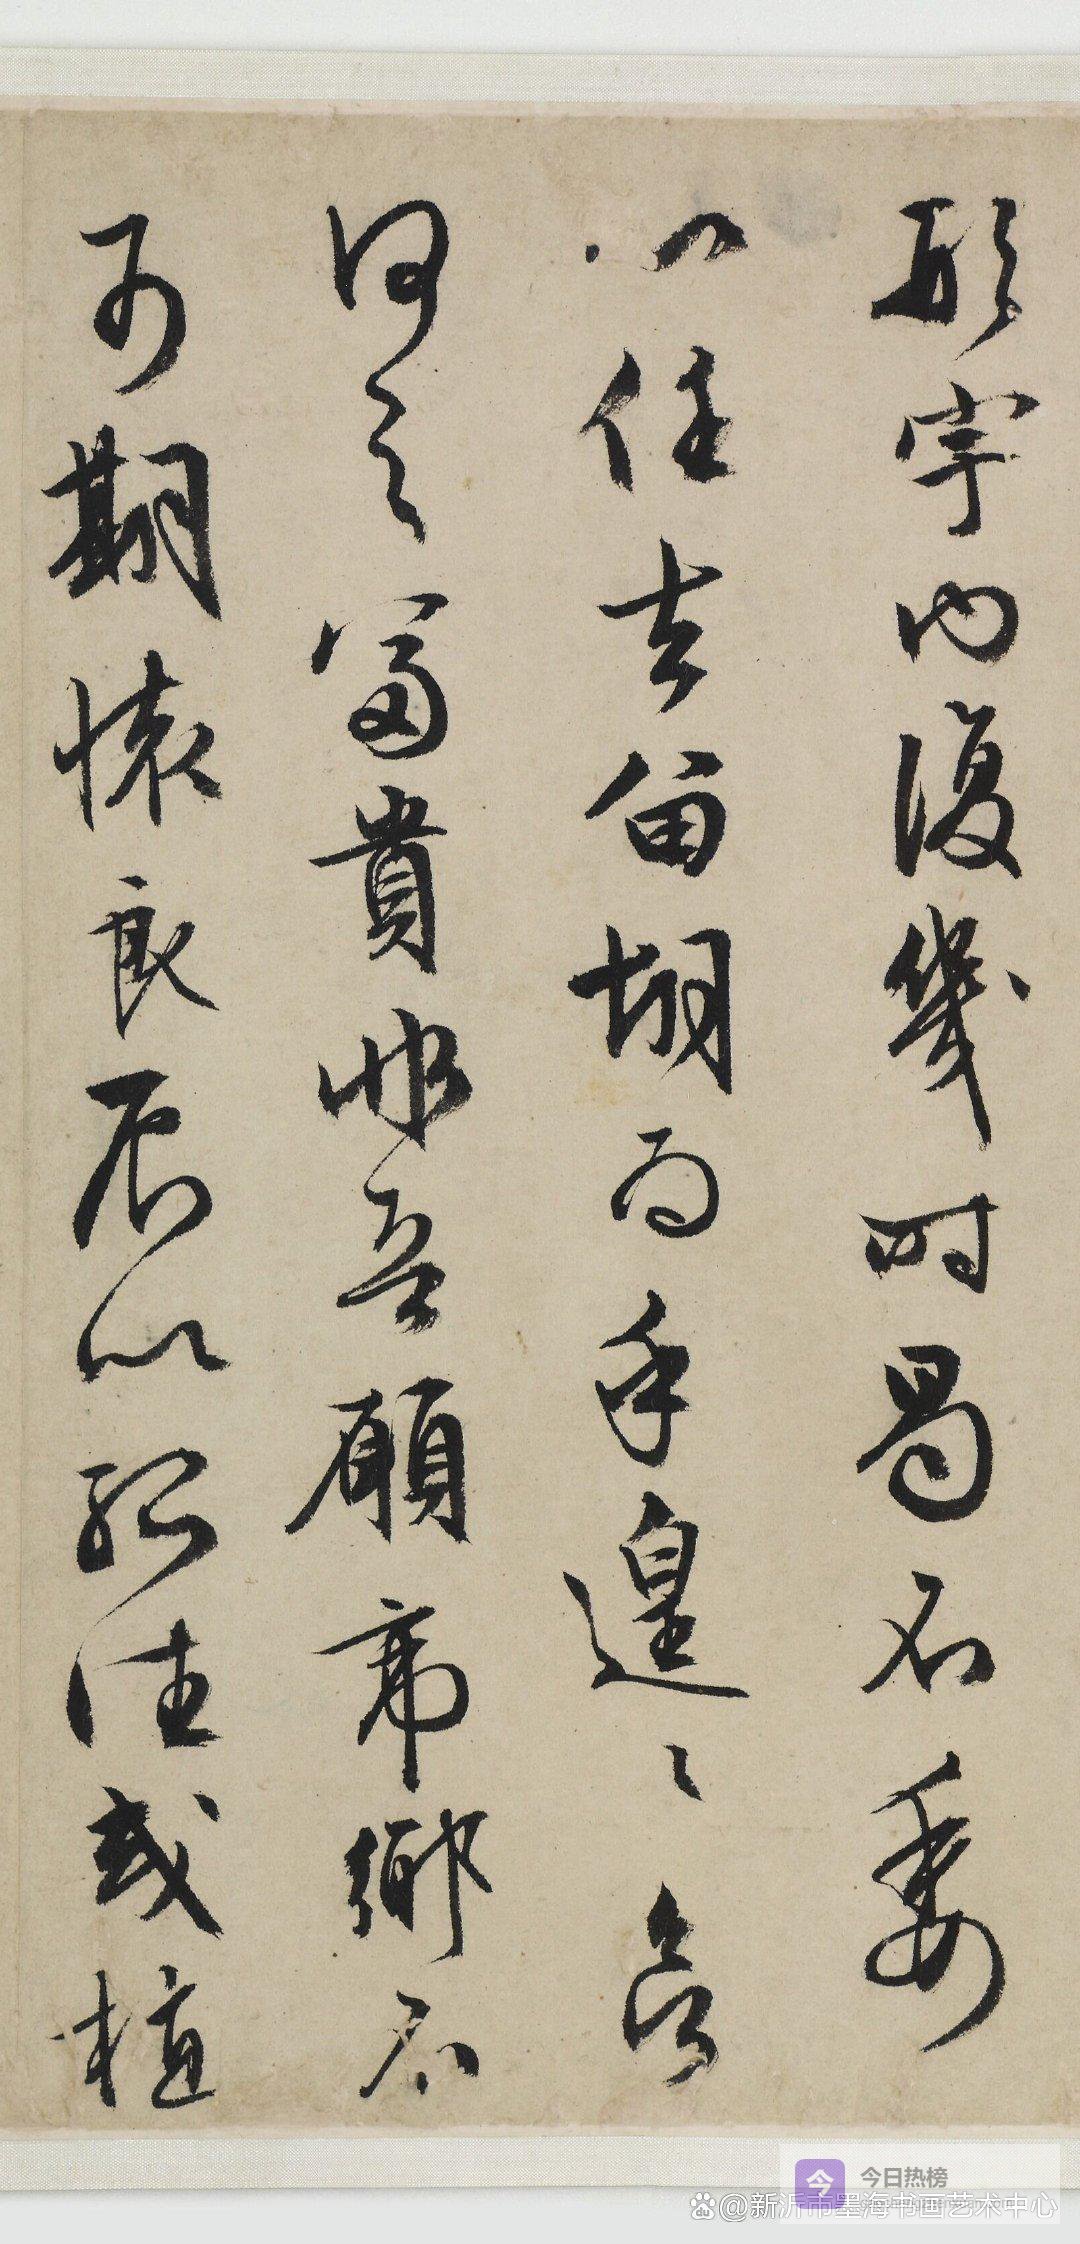 形宇内復幾時曷不委
心任去留胡為乎遑〻欲
何之富貴非吾願帝鄉不
可期懷良辰以孤往或植
今 今日热榜
@新沂市墨海书画艺术中心